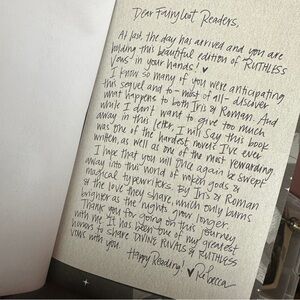 Dear FairyLoot Readers,
At last, the day has arrived and you are
holding this beautiful edition of RUTHLESS
VOWS in your hands! ♥
I know so many of you were anticipating
this sequel and to - most of all - discover
what happens to both Iris & Roman. And
while I don't want to give too much
away in this letter, I will say this book
was one of the hardest novels I've ever
written, as well as one of the most rewarding.
I hope that you will once again be swept
away into this world of broken gods &
magical typewriters. By Iris & Roman
& the love they share, which only burns
brighter as the nights grow longer.
Thank you for going on this journey
with me. It has been one of my greatest
honors to share DIVINE RIVALS & RUTHLESS
VOWS with you.
Happy Reading! ♥ Rebecca